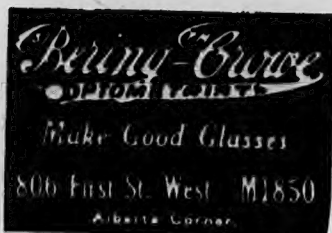 Bering-Crowe
OPTOMETRISTS
Make Good Glasses
806 First St. West M1850
Alberta Corner.